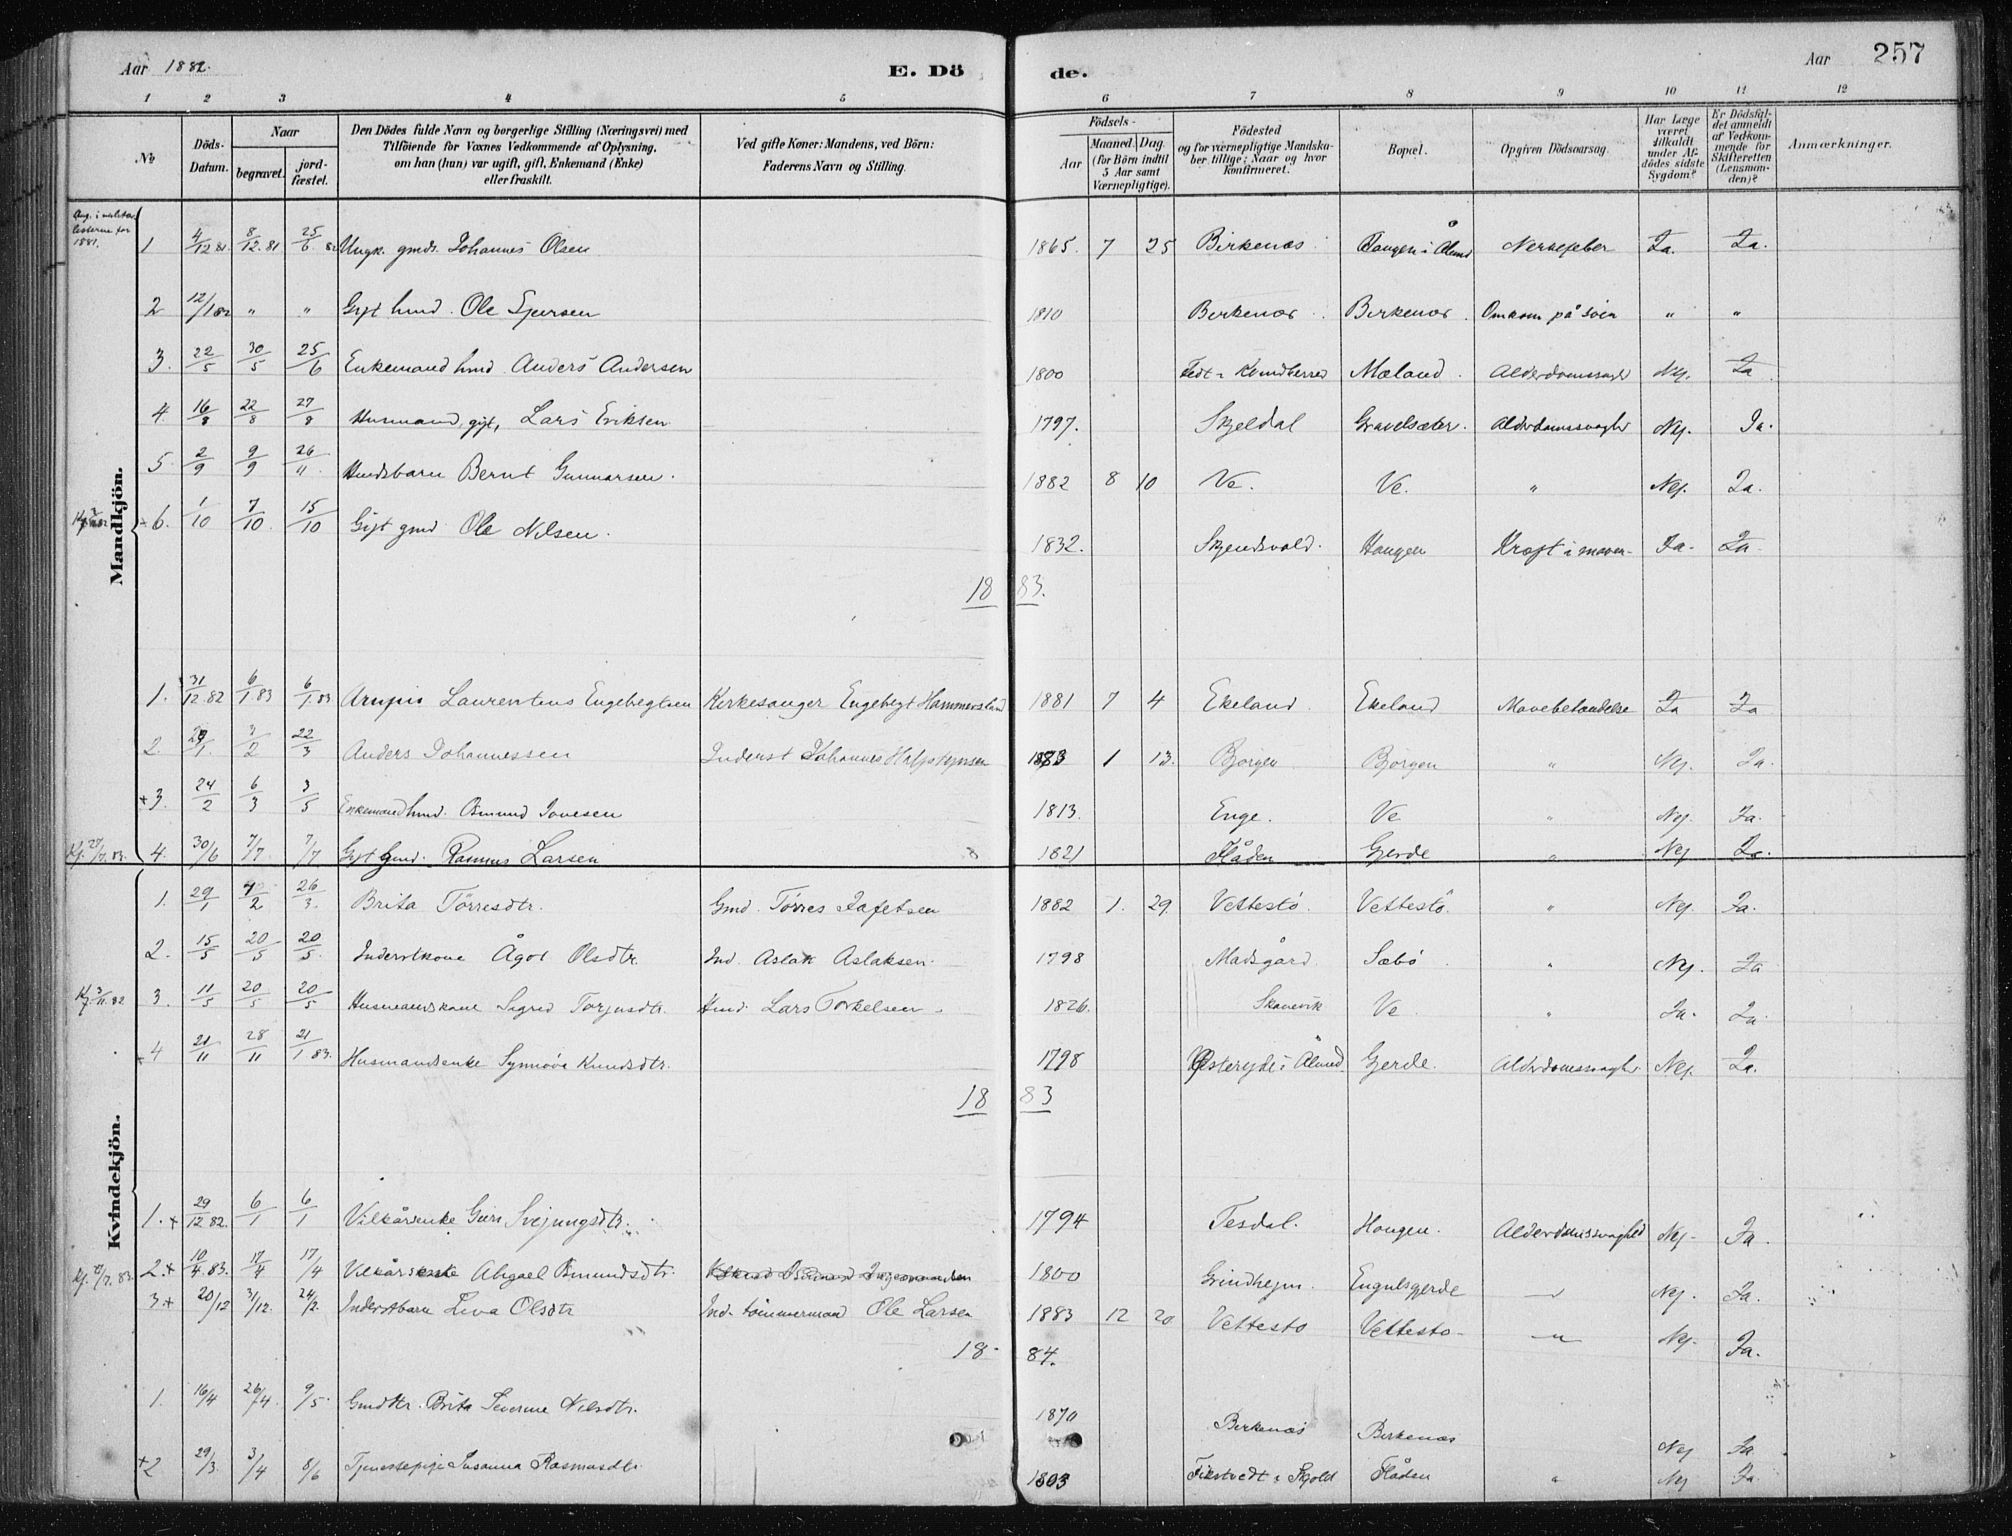 Aar 1882. E. Dö de. Aar 257
1 2 3 4 5 6 7 8 9 10 11 12
No Döds-Datum. Naar begravet. jordfæstet. Den Dödes fulde Navn og borgerlige Stilling (Næringsvei) med Tilföiende for Voxnes Vedkommende af Oplysning, om han (hun) var ugift, gift, Enkemand (Enke) eller fraskilt. Ved gifte Koner: Mandens, ved Börn: Faderens Navn og Stilling. Födsels- Aar Maaned. Dag. (for Börn indtil 5 Aar samt Værnepligtige). Födested og for værnepligtige Mandskaber tillige: Naar og hvor konfirmeret. Bopæl. Opgiven Dödsaarsag. Har Læge været tilkaldt under Afdödes sidste Sygdom? Er Dödsfaldet anmeldt af Vedkommende for Skifteretten (Lensmanden)? Anmærkninger.
Mandkjön.
1 4/12 81. 8/12. 81 25/6 82 Ungk. gmds. Johannes Olsen 1865. 7 25 Birkenæs Haugen i Ølmd Nervefeber Ja. Ja.
2 12/1 82 " " Gift hmd. Ole 1810 Birkenæs Birkenæs Omkom på søen " "
3. 22/5 30/5 25/6 Enkemand hmd Anders Andersen 1800 Mæland. Alderdomssvaghd Nej. Ja
4. 16/8 22/8 27/8 Husmand, gift, Lars Eriksen 1797. Skjeldal Gravelsæter. Alderdomssvaghd Nej. Ja.
5. 2/9 9/9 26/11 Hmdsbarn Bernt Gunnarsen. 1882 8 10 Ve. Ve. " Nej. Ja.
6. 1/10 7/10 15/10 Gift gmd. Ole Nilsen. 1832. Skjendsvold. Haugen Kræft i maven Ja. Ja.
18 83.
1. 31/12 82 6/1 83 6/1 83 Laurentius Engebregtsen Kirkesanger Engebregt Hammersland 1881 7 4 Ekeland Ekeland Mavebetændelse Ja Ja
2. 29/1. 3/2 22/3 Anders Johannessen Inderst Johannes 1883 1 13. Bjørgen Bjørgen " Nej. Ja.
+3. 24/2 6/3 3/5 Enkemand hmd. Omund 1813. Enge. Ve " Nej. Ja.
4. 30/6 7/7 7/7 Gift Gmd. Rasmus Larsen 1821 Flåden Gjerde " Nej Ja.
Kvindekjön.
1. 29/1 4/2 26/3. Brita Tørresdtr. Gmd. Tørres Jafetsen 1882 1. 29. Vettestø. Vettestø. " Nej. Ja.
2. 15/5 20/5 20/5. Inderstkone Ågot Olsdtr. Ind. Aslak Aslaksen. 1798 Madsgård. Sæbø " Nej. Ja
3. 11/5 20/5 20/5 Husmandskone Sigrid Torjusdtr. Hmd. Lars Torkelsen. 1826. Skanevik Ve " Ja. Ja.
+4 21/11 28/11 21/1 83. Husmandsenke Synnøve Knudsdtr. 1798 Gjerde. Alderdomssvaghd. Nej. Ja.
18 83
1.+ 29/12 82. 6/1 6/1 Vilkårsenke Guri Svejnungsdtr. 1794 Tesdal. Haugen. Alderdomssvaghed Nej- Ja.
2.+ 10/4 83. 17/4 17/4 Vilkårsenke Abgael Omundsdtr. 1800 Grindhejm. Engulsgjerde Nej. Ja.
3+ 20/12 31/12. 24/2. Inderstbarn Liva Olsdtr Ind. tømmermand Ole Larsen 1883 12 20 Vettestø Vettestø - Nej. Ja.
18 84.
1. 16/4 26/4. 9/5. Gmdsdtr. Brita Severine Nilsdtr. 1870 Birkenæs Birkenæs Nej Ja.
+2 29/3. 3/4 8/6 Tjenestepige Susanna Rasmusdtr. 1803 Flåden " Nej Ja.